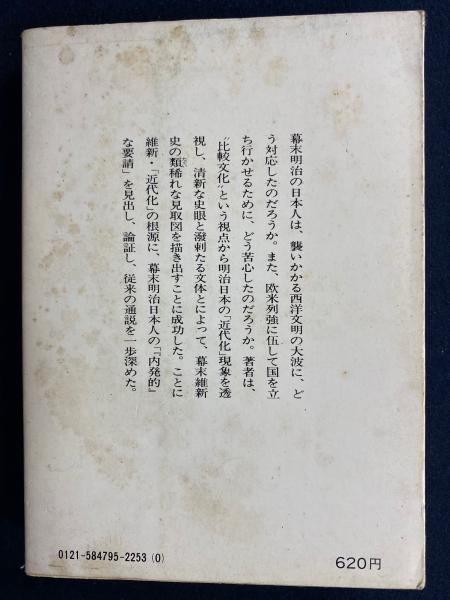 幕末明治の日本人は、襲いかかる西洋文明の大波に、ど
う対応したのだろうか。また、欧米列強に伍して国を立
ち行かせるために、どう苦心したのだろうか。著者は、
“比較文化”という視点から明治日本の「近代化」現象を透
視し、清新な史眼と潑剌たる文体とによって、幕末維新
史の類稀れな見取図を描き出すことに成功した。ことに
維新・「近代化」の根源に、幕末明治日本人の「『内発的』
な要請」を見出し、論証し、従来の通説を一歩深めた。
0121-584795-2253 (0)
620円